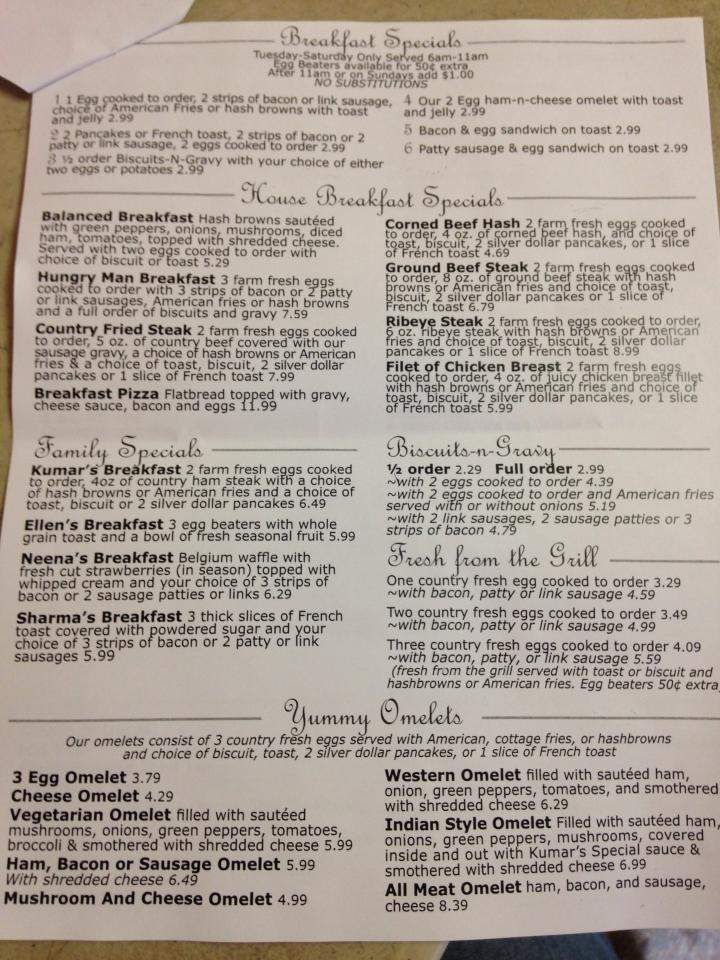 Breakfast Specials
Tuesday-Saturday Only Served 6am-11am
Egg Beaters available for 50¢ extra
After 11am or on Sundays add $1.00
NO SUBSTITUTIONS
1 1 Egg cooked to order, 2 strips of bacon or link sausage,
choice of American Fries or hash browns with toast
and jelly 2.99
2 2 Pancakes or French toast, 2 strips of bacon or 2
patty or link sausage, 2 eggs cooked to order 2.99
3 ½ order Biscuits-N-Gravy with your choice of either
two eggs or potatoes 2.99
4 Our 2 Egg ham-n-cheese omelet with toast
and jelly 2.99
5 Bacon & egg sandwich on toast 2.99
6 Patty sausage & egg sandwich on toast 2.99
House Breakfast Specials
Balanced Breakfast Hash browns sautéed
with green peppers, onions, mushrooms, diced
ham, tomatoes, topped with shredded cheese.
Served with two eggs cooked to order with
choice of biscuit or toast 5.29
Hungry Man Breakfast 3 farm fresh eggs
cooked to order with 3 strips of bacon or 2 patty
or link sausages, American fries or hash browns
and a full order of biscuits and gravy 7.59
Country Fried Steak 2 farm fresh eggs cooked
to order, 5 oz. of country beef covered with our
sausage gravy, a choice of hash browns or American
fries & a choice of toast, biscuit, 2 silver dollar
pancakes or 1 slice of French toast 7.99
Breakfast Pizza Flatbread topped with gravy,
cheese sauce, bacon and eggs 11.99
Corned Beef Hash 2 farm fresh eggs cooked
to order, 4 oz. of corned beef hash, and choice of
toast, biscuit, 2 silver dollar pancakes, or 1 slice
of French toast 4.69
Ground Beef Steak 2 farm fresh eggs cooked
to order, 8 oz. of ground beef steak with hash
browns or American fries and choice of toast,
biscuit, 2 silver dollar pancakes or 1 slice of
French toast 6.79
Ribeye Steak 2 farm fresh eggs cooked to order,
6 oz. ribeye steak with hash browns or American
fries and choice of toast, biscuit, 2 silver dollar
pancakes or 1 slice of French toast 8.99
Filet of Chicken Breast 2 farm fresh eggs
cooked to order, 4 oz. of juicy chicken breast fillet
with hash browns or American fries and choice of
toast, biscuit, 2 silver dollar pancakes, or 1 slice
of French toast 5.99
Family Specials
Kumar's Breakfast 2 farm fresh eggs cooked
to order, 4oz of country ham steak with a choice
of hash browns or American fries and a choice of
toast, biscuit or 2 silver dollar pancakes 6.49
Ellen's Breakfast 3 egg beaters with whole
grain toast and a bowl of fresh seasonal fruit 5.99
Neena's Breakfast Belgium waffle with
fresh cut strawberries (in season) topped with
whipped cream and your choice of 3 strips of
bacon or 2 sausage patties or links 6.29
Sharma's Breakfast 3 thick slices of French
toast covered with powdered sugar and your
choice of 3 strips of bacon or 2 patty or link
sausages 5.99
Biscuits-n-Gravy
½ order 2.29 Full order 2.99
~with 2 eggs cooked to order 4.39
~with 2 eggs cooked to order and American fries
served with or without onions 5.19
~with 2 link sausages, 2 sausage patties or 3
strips of bacon 4.79
Fresh from the Grill
One country fresh egg cooked to order 3.29
~with bacon, patty or link sausage 4.59
Two country fresh eggs cooked to order 3.49
~with bacon, patty or link sausage 4.99
Three country fresh eggs cooked to order 4.09
~with bacon, patty, or link sausage 5.59
(fresh from the grill served with toast or biscuit and
hashbrowns or American fries. Egg beaters 50¢ extra
Yummy Omelets
Our omelets consist of 3 country fresh eggs served with American, cottage fries, or hashbrowns
and choice of biscuit, toast, 2 silver dollar pancakes, or 1 slice of French toast
3 Egg Omelet 3.79
Cheese Omelet 4.29
Vegetarian Omelet filled with sautéed
mushrooms, onions, green peppers, tomatoes,
broccoli & smothered with shredded cheese 5.99
Ham, Bacon or Sausage Omelet 5.99
With shredded cheese 6.49
Mushroom And Cheese Omelet 4.99
Western Omelet filled with sautéed ham,
onion, green peppers, tomatoes, and smothered
with shredded cheese 6.29
Indian Style Omelet Filled with sautéed ham,
onions, green peppers, mushrooms, covered
inside and out with Kumar's Special sauce &
smothered with shredded cheese 6.99
All Meat Omelet ham, bacon, and sausage,
cheese 8.39